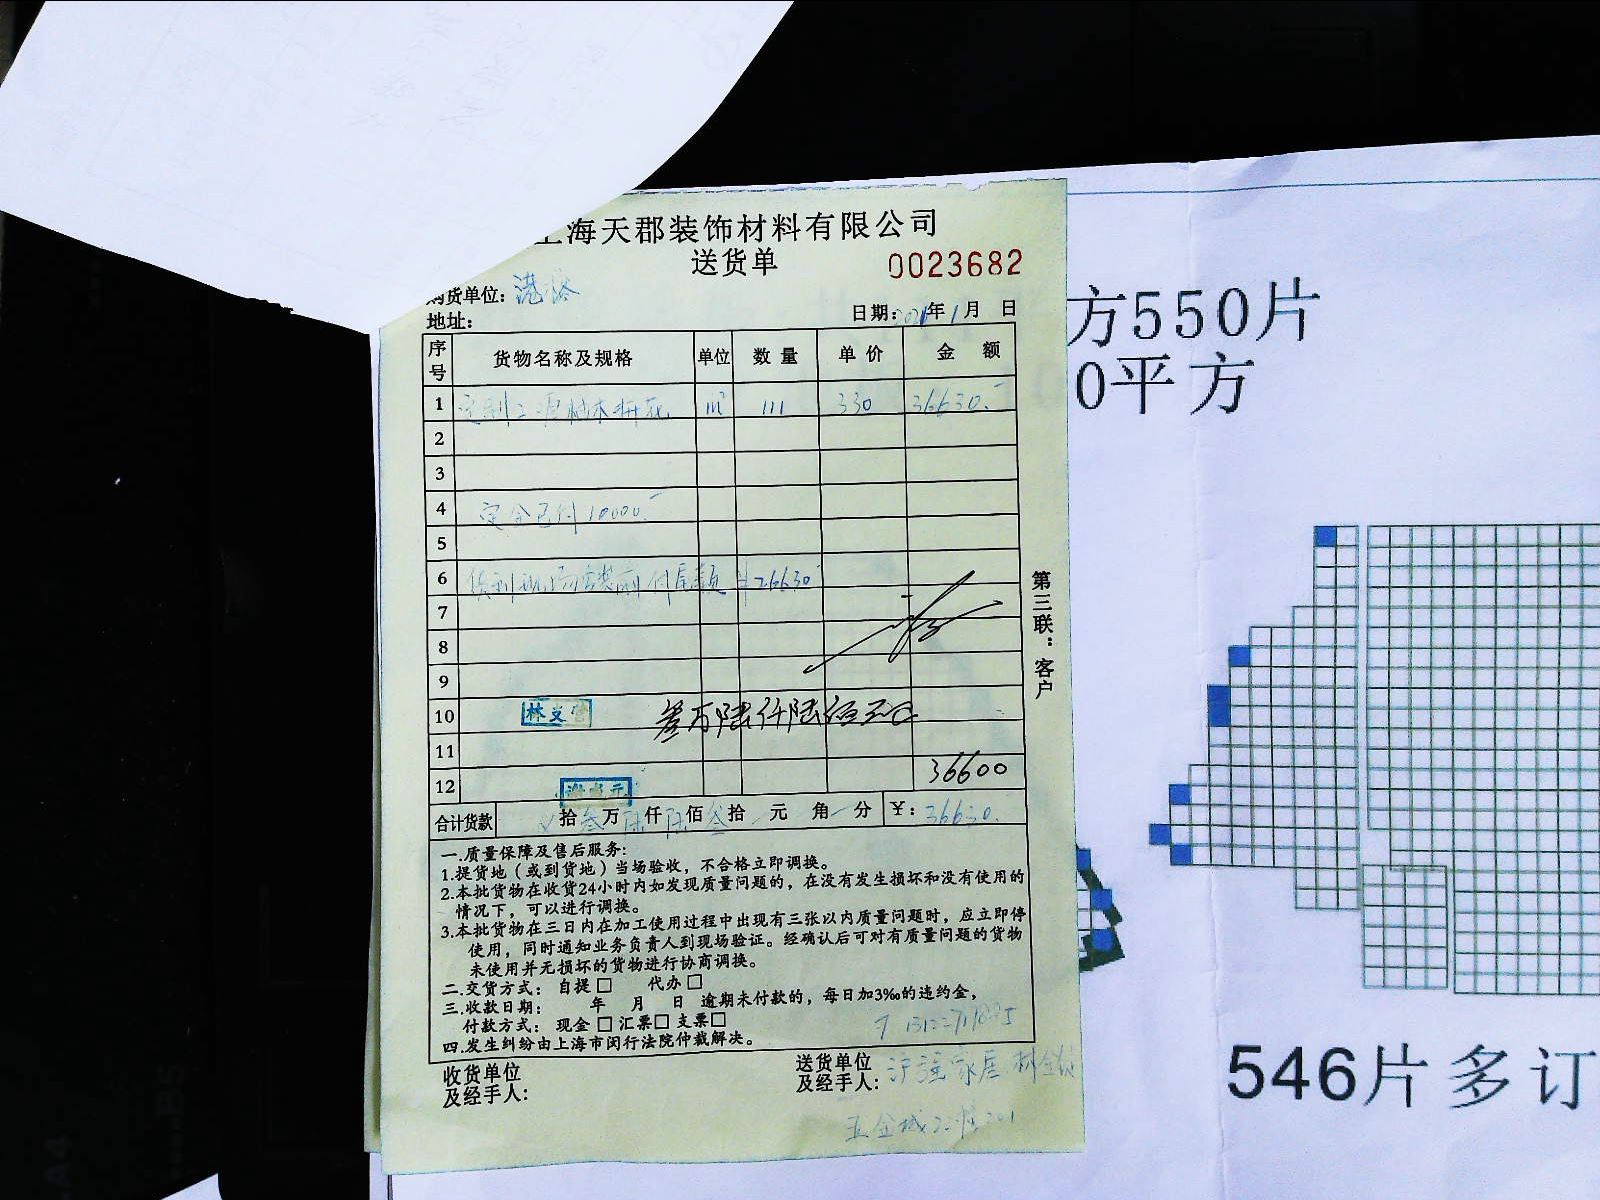 海天郡装饰材料有限公司
送货单
0023682
购货单位:
地址:
日期: 年1月 日
序号 货物名称及规格 单位 数量 单价 金额
1 m² 111 330 36630.-
2
3
4 定金已付10000.-
5
6 货到现场安装前付尾款 ¥26630-
7
8
9
10 叁万陆仟陆佰元正
11
12 36600
合计货款 拾叁万陆仟陆佰叁拾 元 角 分 ¥: 36630.
一.质量保障及售后服务:
1.提货地(或到货地)当场验收,不合格立即调换。
2.本批货物在收货24小时内如发现质量问题的,在没有发生损坏和没有使用的
情况下,可以进行调换。
3.本批货物在三日内在加工使用过程中出现有三张以内质量问题时,应立即停
使用,同时通知业务负责人到现场验证。经确认后可对有质量问题的货物
未使用并无损坏的货物进行协商调换。
二.交货方式: 自提□ 代办□
三.收款日期: 年 月 日 逾期未付款的,每日加3‰的违约金,
付款方式: 现金□汇票□支票□
四.发生纠纷由上海市闵行法院仲裁解决。
收货单位
及经手人:
送货单位
及经手人: 沪强家居
五金城
第三联:客户
方550片
0平方
546片多订
A4
B5